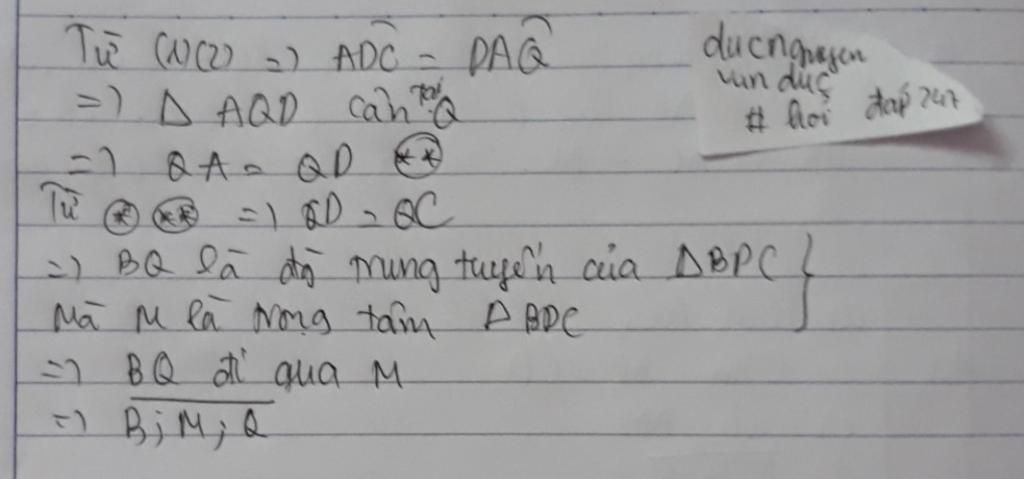 Từ (1)(2) => ADC = DAQ
=> Δ AQD cân tại Q
=> QA = QD (**)
Từ (*) (**) => QD = QC
=> BQ là đg trung tuyến của ΔBDC }
Mà M là trọng tâm ΔBDC
=> BQ đi qua M
=> B; M; Q
ducnguyen
van duc
# hoi đap 247